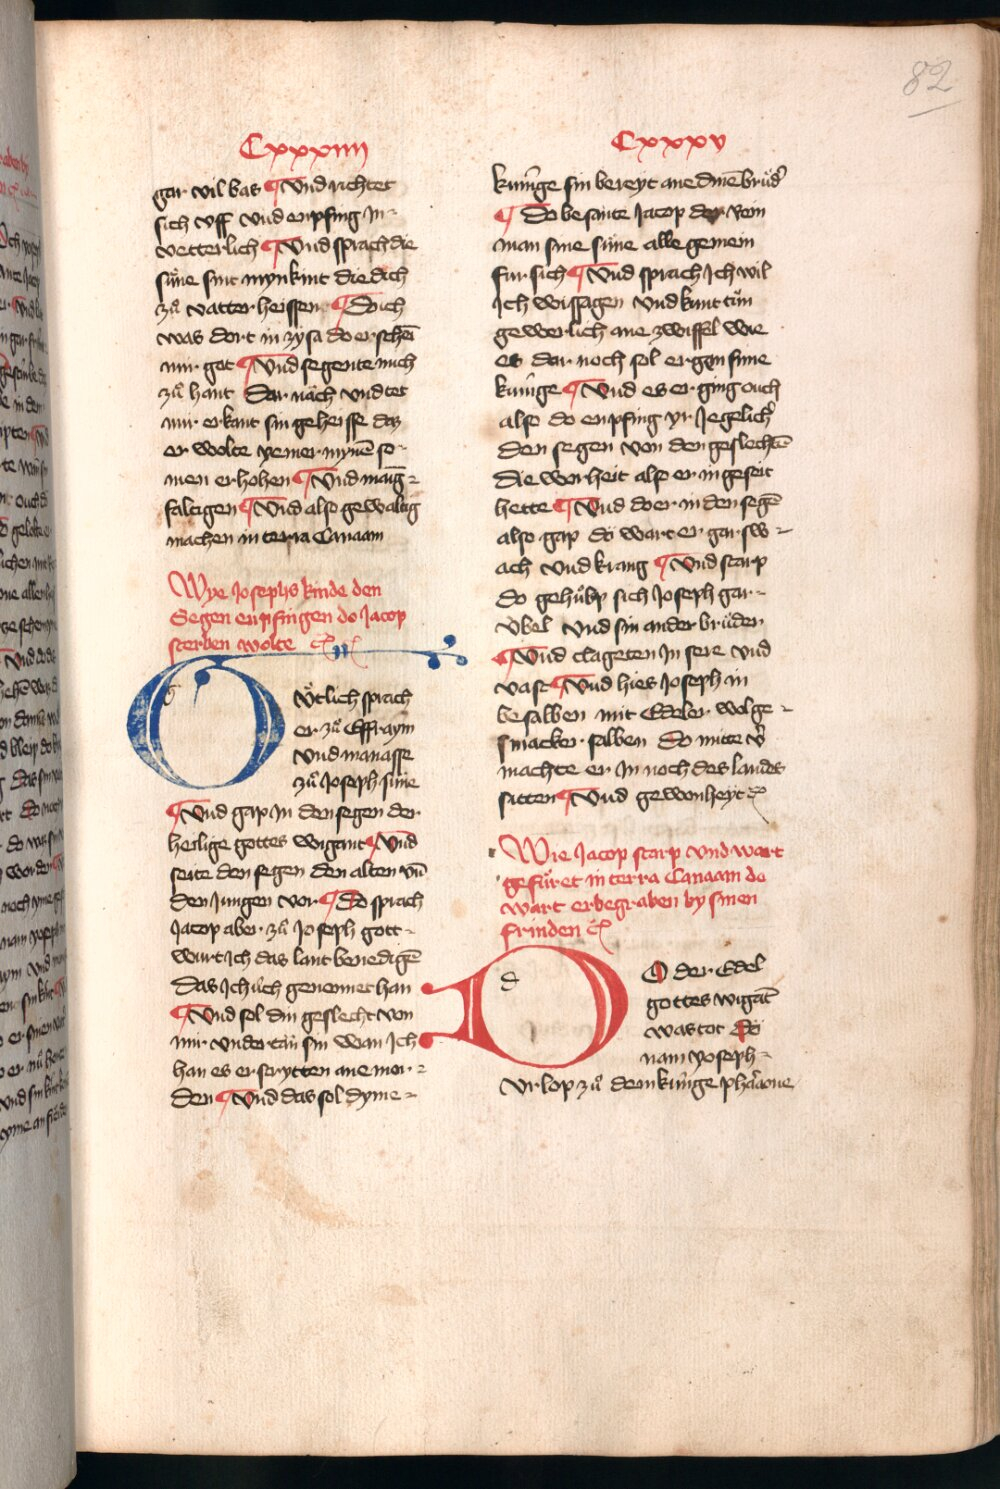 82
Cxxxiiii
gar vil bas ¶ Vnd richtet
sich vff vnd enpfing in
vetterlich ¶ Vnd sprach die
süne sint myn kint die dich
zů vatter heissen ¶ Do ich
was dort in zysa do erschē
mir got ¶ Vnd segente mich
zů hant Dar nach vnd tet
mir erkant sin geheisse daz
er wolte yemer mynē so-
men erhohen ¶ Vnd manig-
faltigen ¶ Vnd also gewaltig
machen in terra Canaam
Wye Josephs kinde den
Segen enpfingen do Jacop
sterben wolte
Gůtlich sprach
er zů Effraym
vnd manasse
zů Joseph süne
¶ Vnd gap in den segen der
heilige gottes wigant ¶ Vnd
seite den segen den alten vn̄
den Jungen vor ¶ Do sprach
Jacop aber zů Joseph gott-
wurt Ich das lant benedigē
Das Ich üch genennet han
¶ Vnd sol din geslecht von
mir vndertan sin wan Ich
han es erstrytten ane mor-
den ¶ Vnd das sol dyme-
Cxxxv
kunige sin bereyt ane dinē brůd'
¶ Do besante Jacop der rein
man sine süne alle gemein
fur sich ¶ Vnd sprach Ich wil
Ich wissagen vnd kunt tůn
gewerlich ane zwiffel wie
es dar noch sol ergan sinne
kunige ¶ Vnd es erging ouch
also do enpfing yr Jegelich'
den segen von den geslechtē
die worheit alse er in geseit
hette ¶ Vnd do er in den segē
also gap do wart er gar sw-
ach vnd krang ¶ Vnd starp
do gehůbp sich Joseph gar-
vbel vnd sin ander brüder
¶ Vnd clageten In sere vnd
vast ¶ Vnd hies Joseph in
besalben mit Edeler wolge-
smacker salben Do mitte v'
machte er In noch des landes
sitten ¶ Vnd gewonheyt
Wie Jacop starp vnd wart
gefüret in terra Canaam do
wart er begraben by sinen
frinden
DO der Edel
gottes wigāt
was tot Do
nam yoseph-
vrlop zů dem kunige pharaone